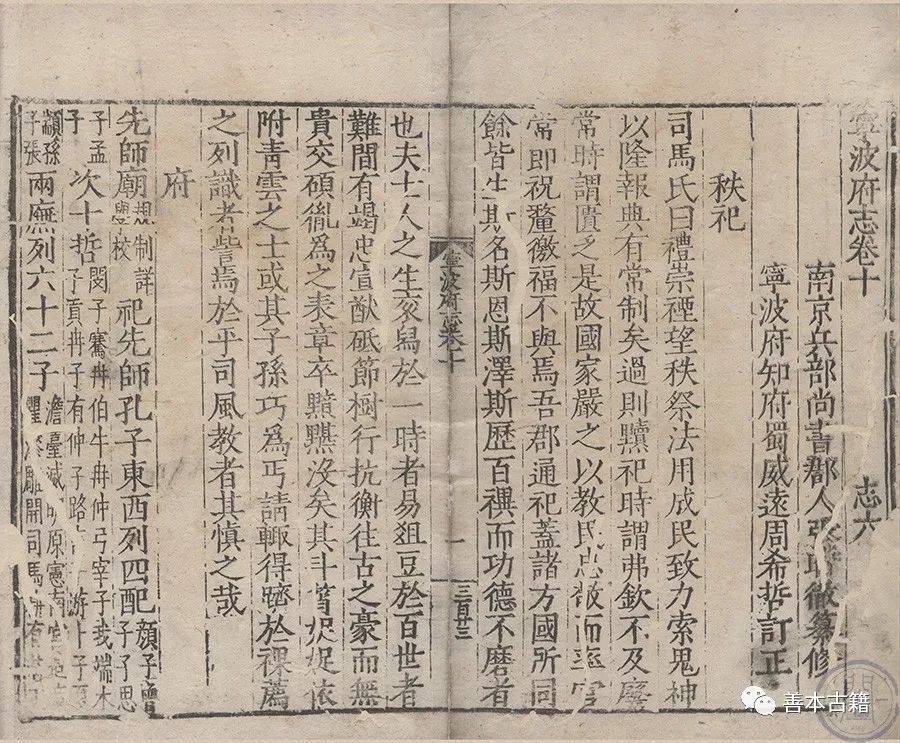 寧波府志卷十 志六
南京兵部尚書郡人張時徹纂修
寧波府知府蜀威遠周希哲訂正
秩祀
司馬氏曰禮崇禋望秩祭法用成民致力索鬼神
以隆報典有常制矣過則黷祀時謂弗欽不及廢
常時謂匱乏是故國家嚴之以教民忠敬而率官
常即祝釐徼福不與焉吾郡通祀蓋諸方國所同
餘皆生斯名斯恩斯澤斯歷百禩而功德不磨者
寧波府志卷十
一
三百廿三
也夫士人之生炙舄於一時者易俎豆於百世者
難間有竭忠宣猷砥節樹行抗衡往古之豪而無
貴交碩胤為之表章卒黮黮沒矣其斗筲娖娖依
附青雲之士或其子孫巧為丐請輙得躋於祼薦
之列識者訾焉於乎司風教者其慎之哉
府
先師廟規制詳學校祀先師孔子東西列四配顏子曾子子思
子孟子次十哲閔子騫冉伯牛冉仲弓宰子我端木子貢冉子有仲子路 游卜子夏
顓孫子張兩廡列六十二子澹臺滅明原憲南宮 漆雕開司馬
善本古籍